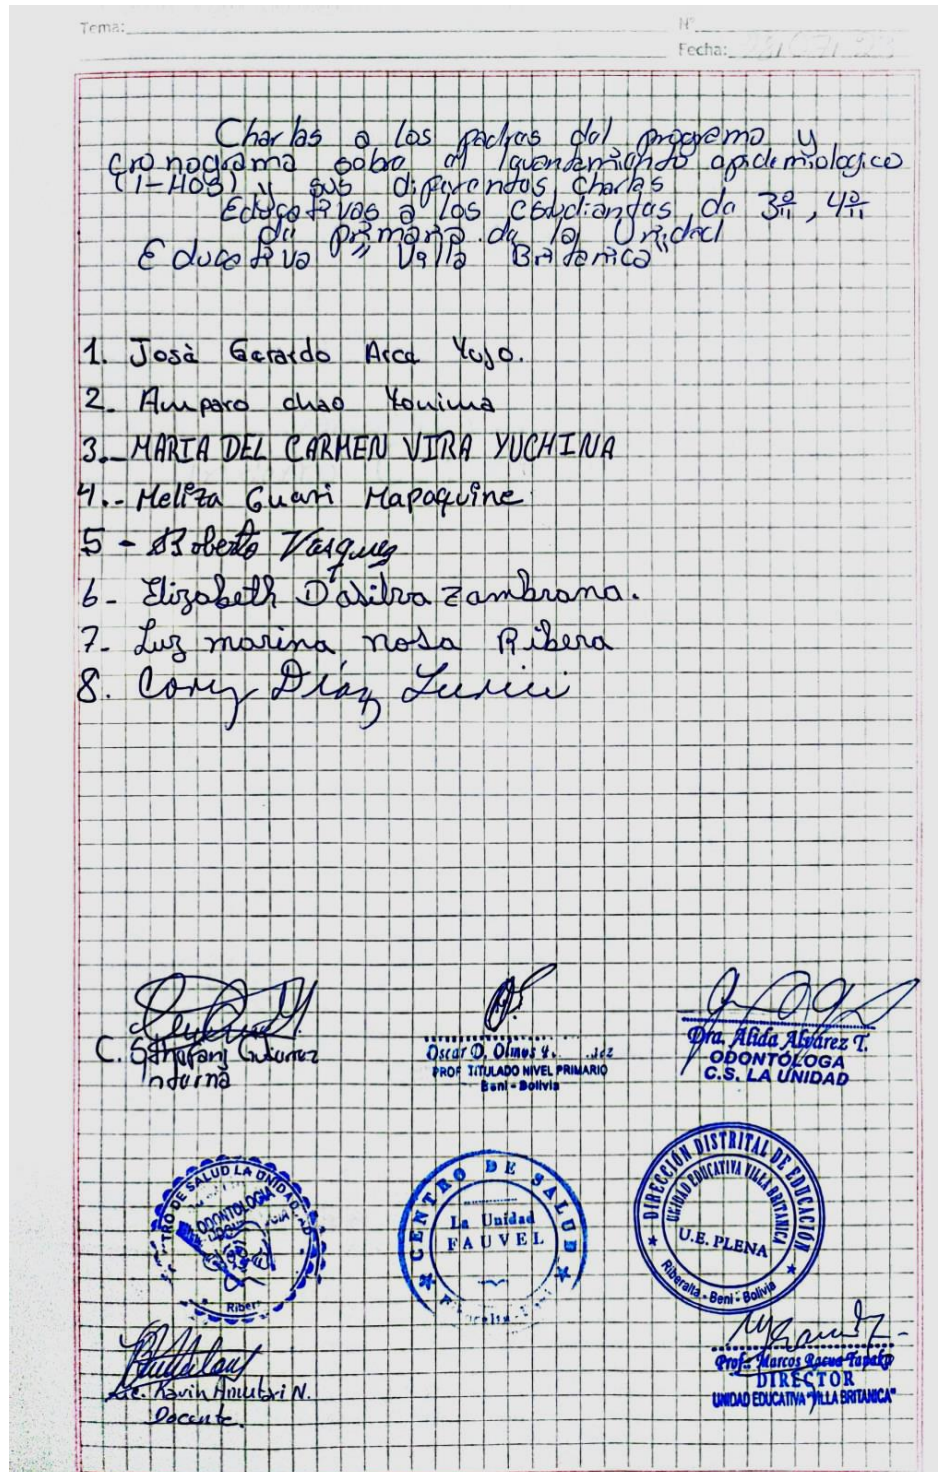 Tema:
Nº
Fecha:
Charlas a los padres del programa y
cronograma sobre el levantamiento epidemiologico
(1-HOS) y sus diferentes charlas
Educativas a los estudiantes de 3º, 4º
de primaria de la Unidad
Educativa "Villa Britanica"
1. Josè Gerardo Arce Yujo.
2- Amparo chao Youima
3.- MARIA DEL CARMEN VIRA YUCHINA
4.- Meliza Guari Mapaquine
5 - Roberto Vasquez
6- Elizabeth D'asilva Zambrana.
7- Luz marina nosa Ribera
8. Díaz
C. Gutierrez
Oscar D. Olmos
PROF. TITULADO NIVEL PRIMARIO
Beni - Bolivia
Dra. Alida Alvárez T.
ODONTÓLOGA
C.S. LA UNIDAD
SALUD LA UNIDAD
ODONTOLOGIA
CENTRO DE SALUD
La Unidad
FAUVEL
DIRECCIÓN DISTRITAL DE EDUCACIÓN
UNIDAD EDUCATIVA VILLA BRITANICA
U.E. PLENA
Riberalta - Beni - Bolivia
Docente.
Prof.: Marcos Racua
DIRECTOR
UNIDAD EDUCATIVA "VILLA BRITANICA"